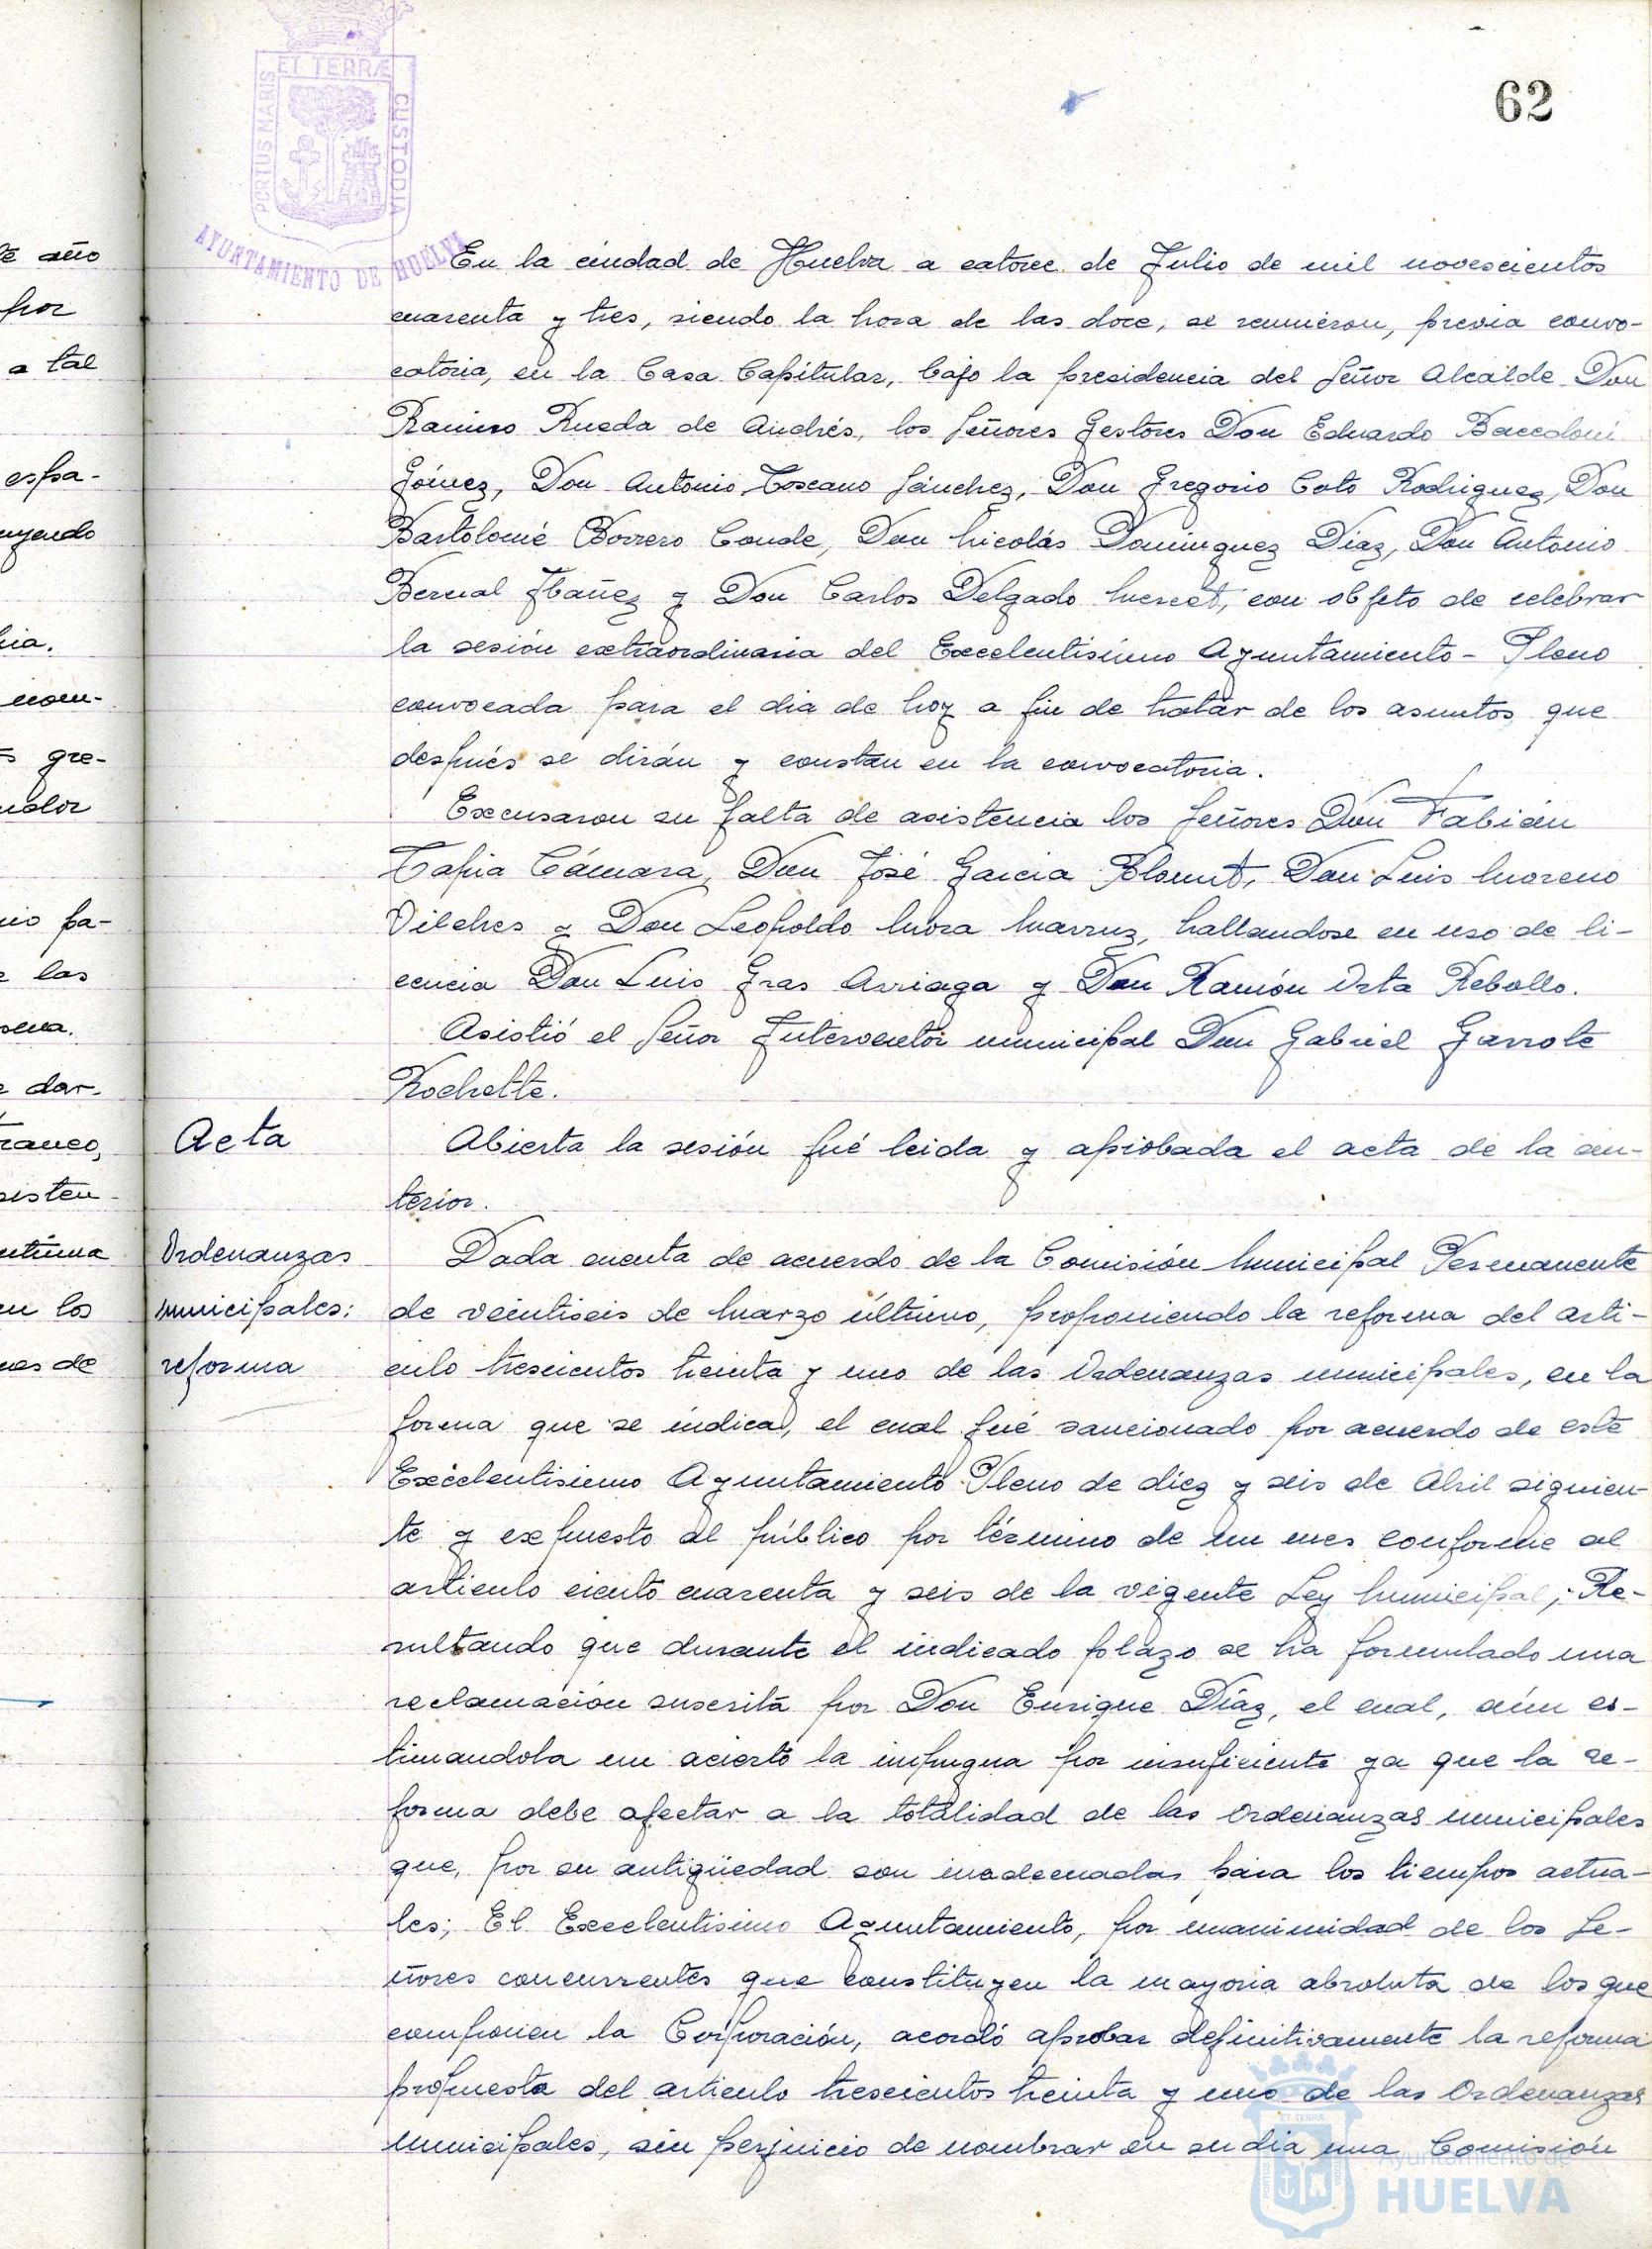 62
PORTUS MARIS ET TERRÆ CUSTODIA
AYUNTAMIENTO DE HUELVA
En la ciudad de Huelva a catorce de Julio de mil novescientos
cuarenta y tres, siendo la hora de las doce, se reunieron, previa convo-
catoria, en la Casa Capitular, bajo la presidencia del Señor Alcalde Don
Ramiro Rueda de Andrés, los Señores Gestores Don Eduardo Baccedoni
Gómez, Don Antonio Toscano Sánchez, Don Gregorio Coto Rodriguez, Don
Bartolomé Borrero Conde, Don Nicolás Dominguez Diaz, Don Antonio
Bernal Ibañez y Don Carlos Delgado Merset, con objeto de celebrar
la sesión extraordinaria del Excelentisimo Ayuntamiento-Pleno
convocada para el dia de hoy a fin de tratar de los asuntos que
después se dirán y constan en la convocatoria.
Excusaron su falta de asistencia los Señores Don Fabián
Tapia Cámara, Don José Garcia Blomut, Don Luis Moreno
Vilches y Don Leopoldo Mora Marruz, hallandose en uso de li-
cencia Don Luis Gras Arriaga y Don Ramón Orta Rebollo.
Asistió el Señor Interventor municipal Don Gabriel Garrote
Rochette.
Acta
Abierta la sesión fué leida y aprobada el acta de la an-
terior.
Ordenanzas
municipales:
reforma
Dada cuenta de acuerdo de la Comisión Municipal Permanente
de veintiseis de Marzo último, proponiendo la reforma del arti-
culo trescientos treinta y uno de las Ordenanzas municipales, en la
forma que se indica, el cual fué sancionado por acuerdo de este
Excelentisimo Ayuntamiento Pleno de diez y seis de Abril siguien-
te y expuesto al público por término de un mes conforme al
articulo ciento cuarenta y seis de la vigente Ley Municipal; Re-
sultando que durante el indicado plazo se ha formulado una
reclamación suscrita por Don Enrique Díaz, el cual, aún es-
timandola un acierto la impugna por insuficiente ya que la re-
forma debe afectar a la totalidad de las Ordenanzas municipales
que, por su antigüedad son inadecuadas para los tiempos actua-
les; El Excelentisimo Ayuntamiento, por unanimidad de los Se-
ñores concurrentes que constituyen la mayoria absoluta de los que
componen la Corporación, acordó aprobar definitivamente la reforma
propuesta del articulo trescientos treinta y uno de las Ordenanzas
municipales, sin perjuicio de nombrar en su dia una Comisión
te año
por
a tal
espa-
uyendo
nom-
gre-
pa-
las
dar-
en los
Ayuntamiento de
HUELVA